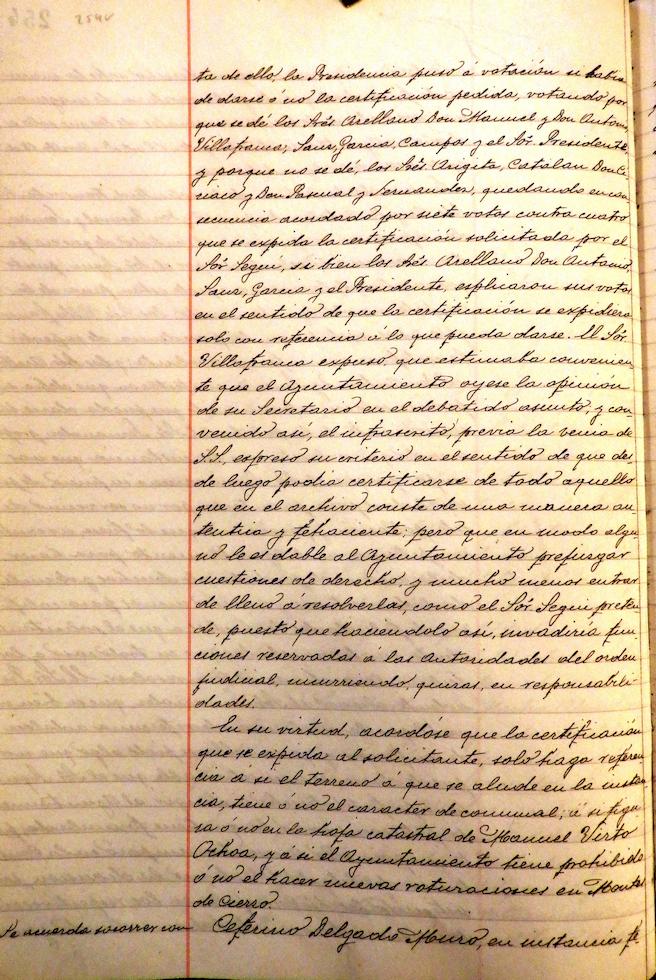 254v
ta de ello, la Presidencia puso á votación si había
de darse ó no la certificación pedida, votando por
que se dé los Srés Arellano Don Manuel y Don Antonio,
Villafranca, Sanz, Garcia, Campos y el Sór. Presidente
y porque no se dé, los Srés Arigita, Catalan Don Ci
riaco y Don Pascual y Fernandez, quedando en con
secuencia acordado por siete votos contra cuatro
que se expida la certificación solicitada por el
Sór Segui, si bien los Srés. Arellano Don Antonio,
Sanz, Garcia y el Presidente, esplicaron sus votos
en el sentido de que la certificación se expidiera
solo con referencia á lo que pueda darse. El Sór.
Villafranca expuso, que estimaba convenien
te que el Ayuntamiento oyese la opinión
de su Secretario en el debatido asunto, y con
venido así, el infrascrito, previa la venia de
S.S., expresó su criterio en el sentido de que des
de luego podia certificarse de todo aquello
que en el archivo conste de una manera au
tentica y fehaciente; pero que en modo algu
no le es dable al Ayuntamiento prejuzgar
cuestiones de derecho, y mucho menos entrar
de lleno á resolverlas, como el Sór. Segui preten
de, puesto que haciendolo así, invadiría fun
ciones reservadas á las autoridades del orden
judicial, incurriendo, quizas, en responsabili
dades.
En su virtud, acordóse que la certificación
que se expida al solicitante, solo haga referen
cia á si el terreno á que se alude en la instan
cia, tiene ó no el caracter de comunal; á si figu
ra ó no en la hoja catastral de Manuel Virto
Ochoa, y á si el Ayuntamiento tiene prohibido
ó no el hacer nuevas roturaciones en Montes
de Cierzo.
Se acuerda socorrer con
Ceferino Delgado Muro, en instancia fe